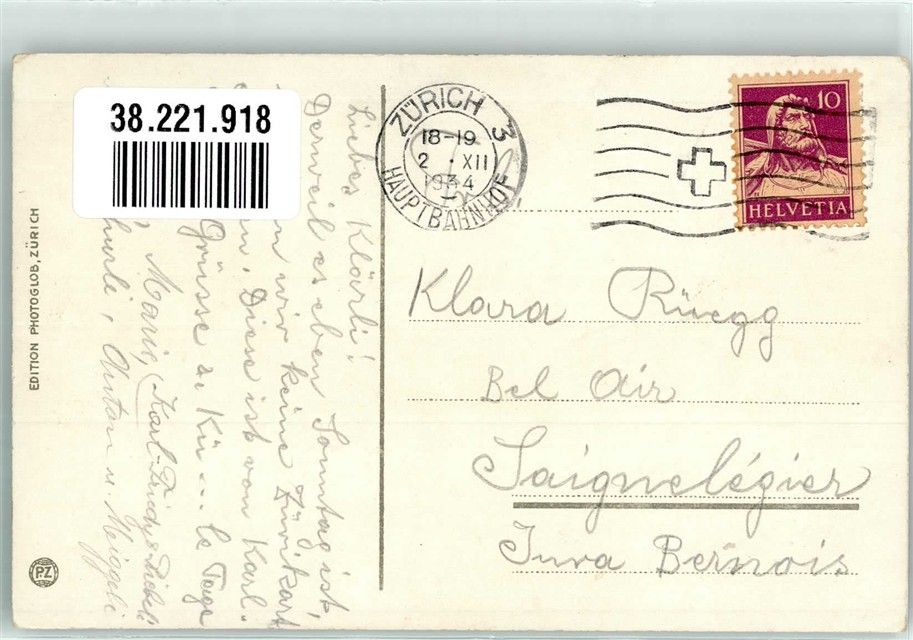 38.221.918
ZÜRICH 3
18-19
2 . XII
1934
HAUPTBAHNHOF
10
HELVETIA
EDITION PHOTOGLOB, ZÜRICH
PZ
Liebes Klärli!
Derweil es eben Sonntag ist,
wir keine
Diese ist von Karl.
Grüsse u. Kü...le Tage
Marie, Karl-Fridy
Anton u. Meiggeli
Klara Rüegg
Bel Air
Saignelégier
Jura Bernois